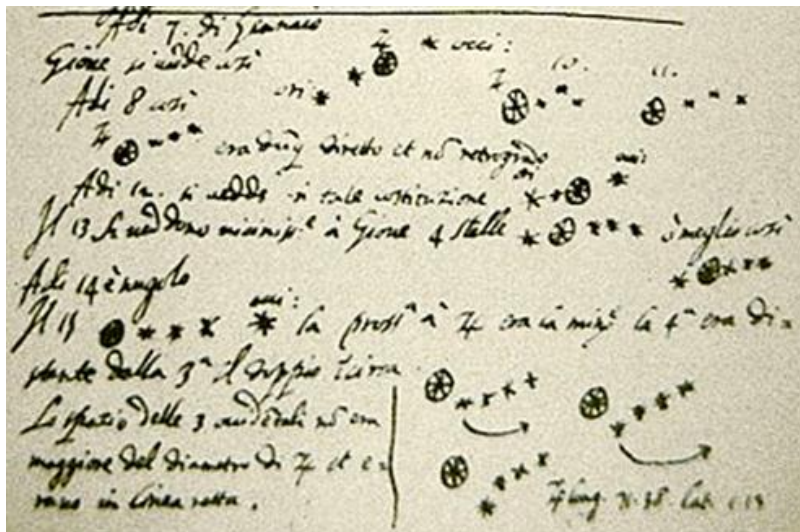 Adi 7. di Gennaio
Gione si uede così
occi:
Adi 8 così
ori
10. 11.
era dūq directo et nō retrogrado
Adi 12. si uedde in tale costituzione
ori
occi
Il 13 si ueddono à Gione 4 stelle
ò meglio così
Adi 14 è nugolo
Il 15
occi:
la pross.ª à ♃ era la min.ª la 4ª era di=
stante dalla 3ª il doppio circa
Lo spatio delle 3 occidētali nō era
maggiore del diametro di ♃ et e=
rano in linea retta.
♃ long.